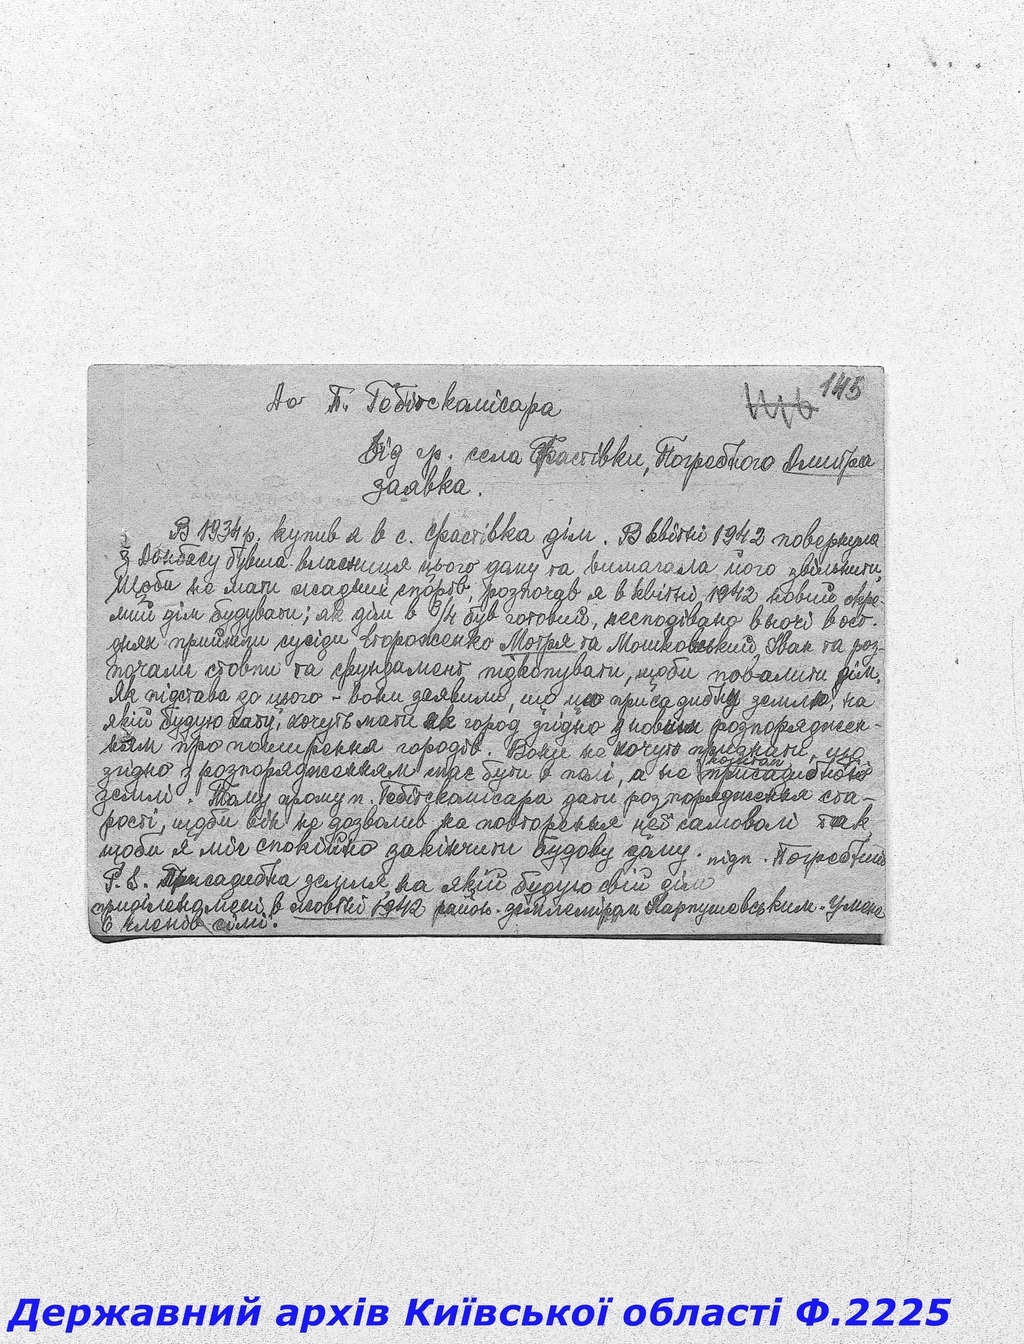 145
До П. Гебітскомісара
Від гр. села Фастівки, Погребного Дмитра
заявка.
В 1934 р. купив я в с. Фастівка дім. В квітні 1942 повернула
з Донбасу бувша власниця цього дому та вимагала його звільнити.
Щоби не мати жадних спорів, розпочав я в квітні 1942 новий окре-
мий дім будувати; як дім в 3/4 був готовий, несподівано вночі в ост.
днях прийшли сусіди Стороженко Мотря та Мошковський Іван та роз-
почали стовпи та фундамент підкопувати, щоби повалити дім.
Як підстава до цього - вони заявили, що цю присадибну землю, на
якій будую хату, хочуть мати як город згідно з новим розпоряджен-
ням про поширення городів. Вони не хочуть признати, що
згідно з розпорядженням має бути в полі, а не присадибної
землі. Тому прошу п. Гебітскомісара дати розпорядження ста-
рості, щоби він не дозволив на повторення цеї самоволі так,
щоби я міг спокійно закінчити будову дому. підп. Погребний
P.S. Присадибна земля на якій будую свій дім
приділена мені в жовтні 1942 район. землеміром Карпушевським. У мене
6 членів сімї.
Державний архів Київської області Ф.2225